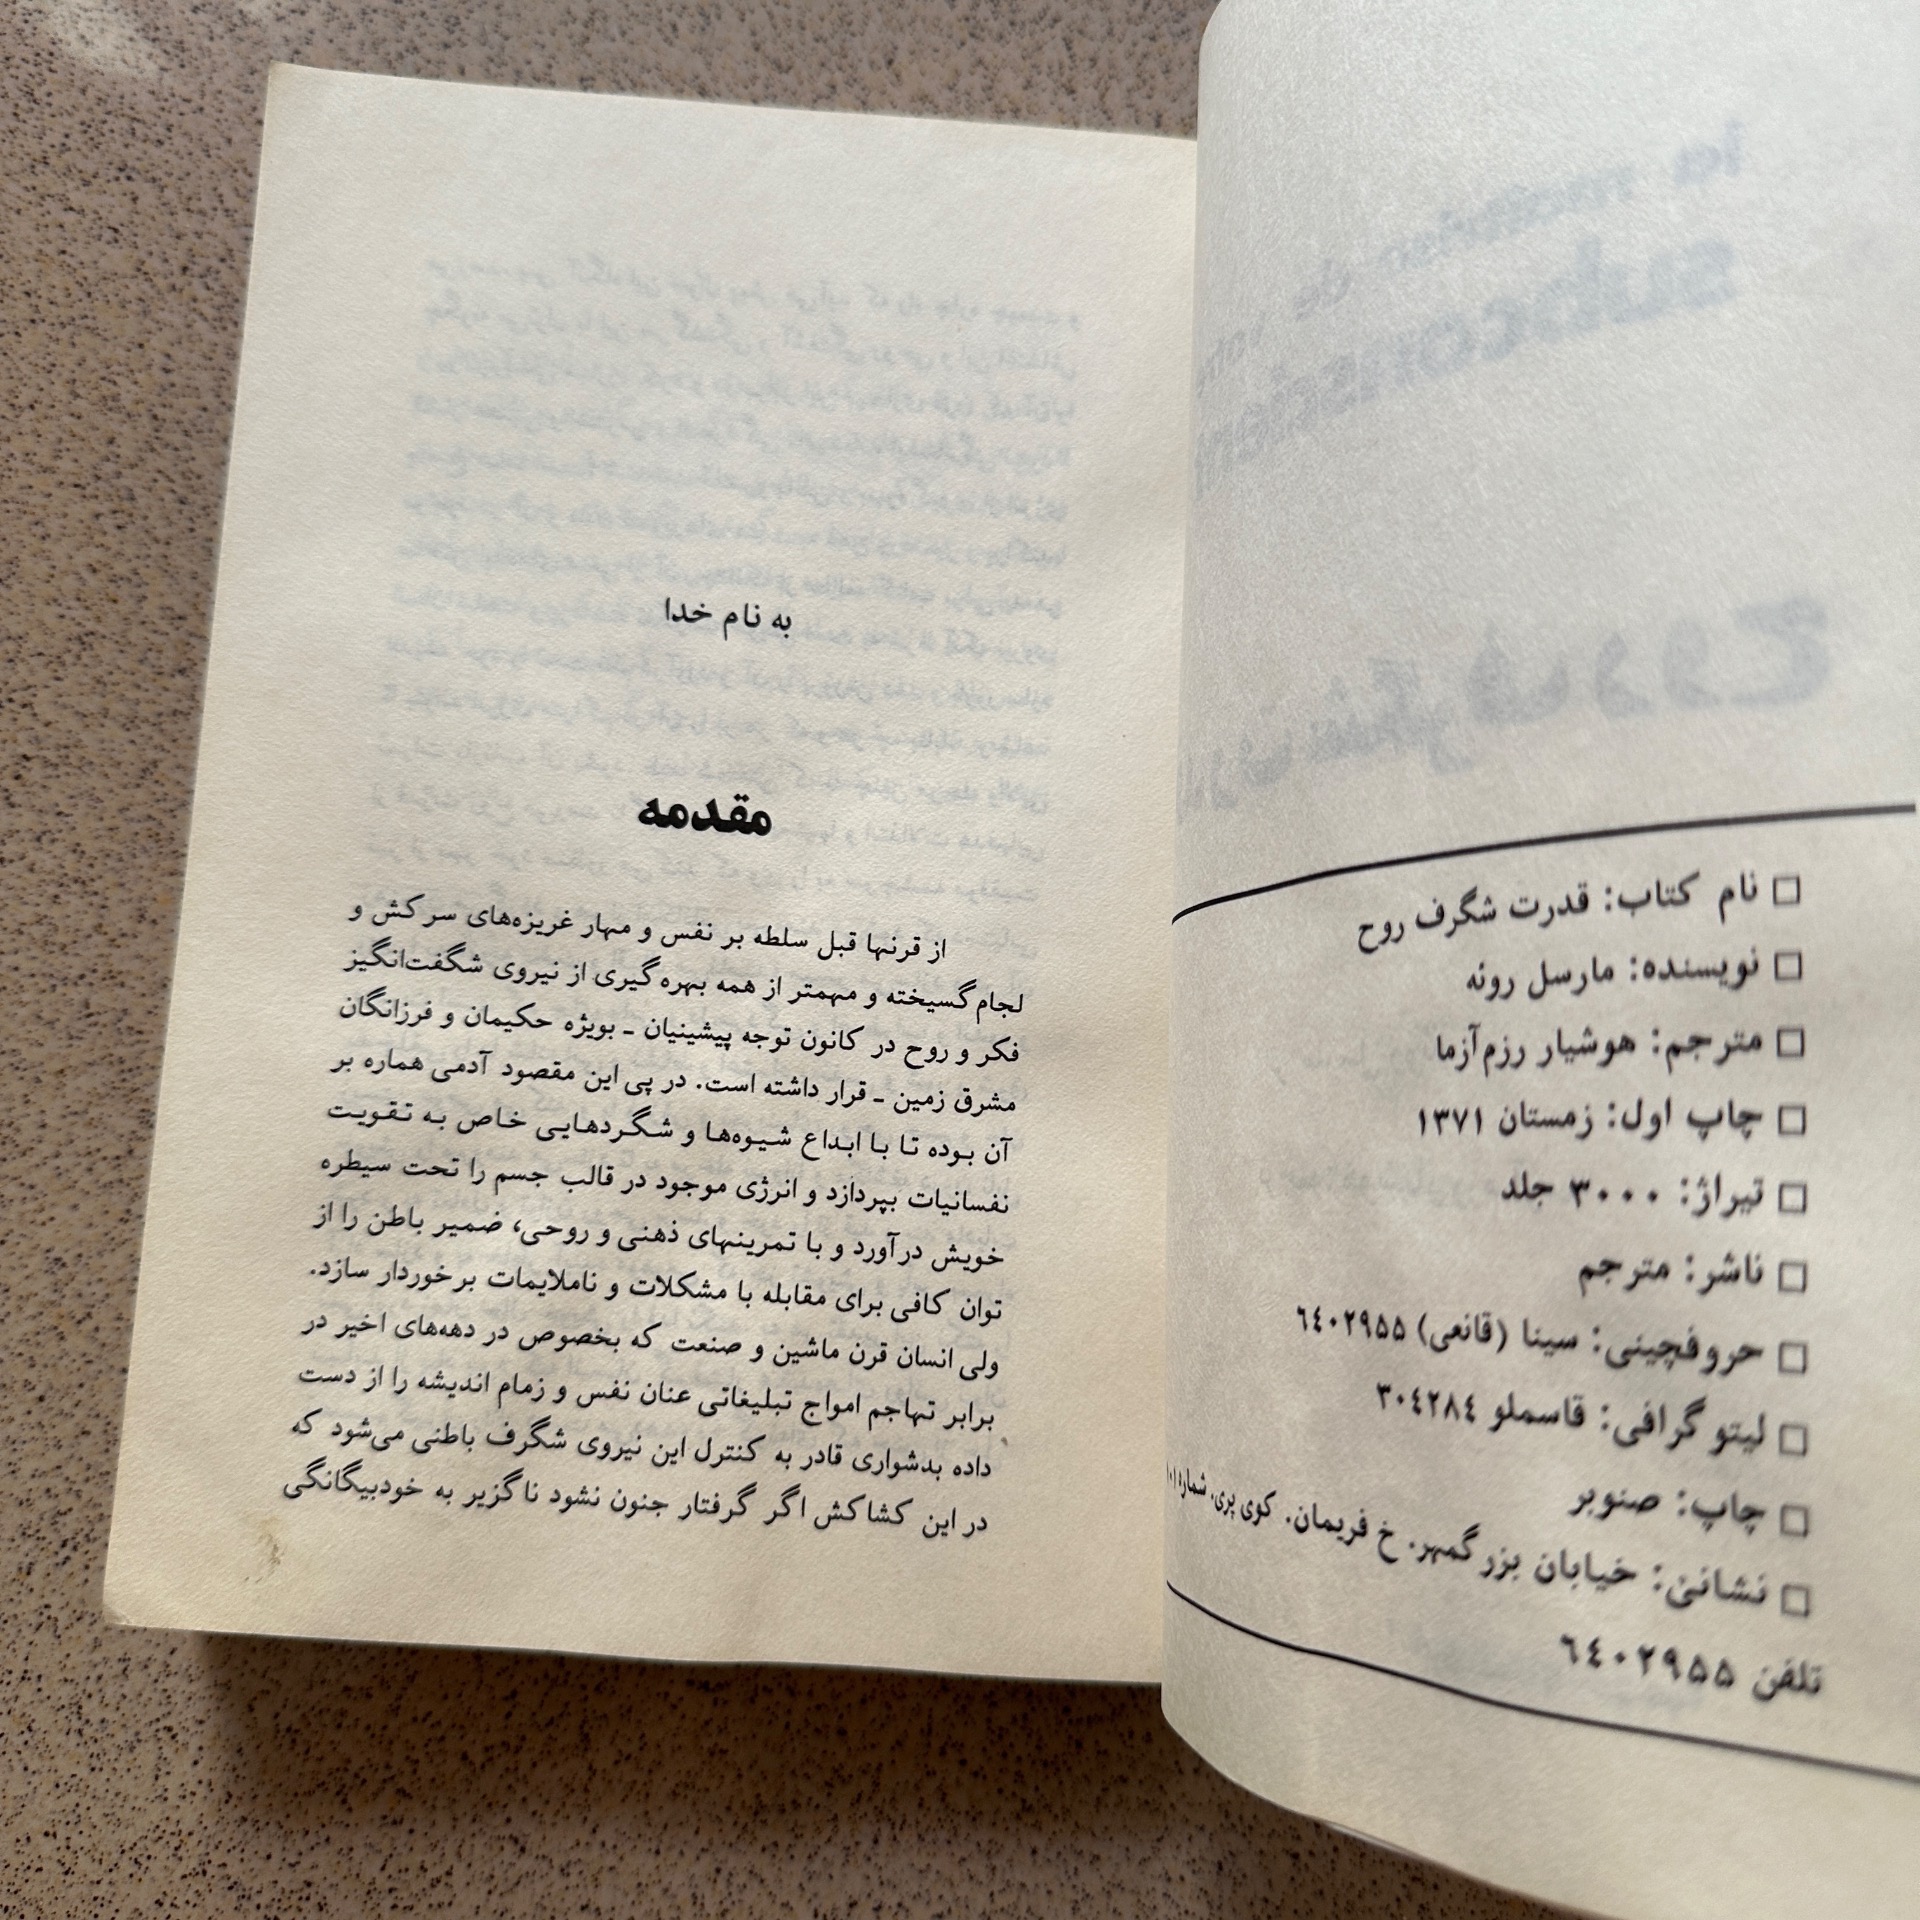 نام کتاب: قدرت شگرف روح
نویسنده: مارسل رونه
مترجم: هوشیار رزم‌آزما
چاپ اول: زمستان ۱۳۷۱
تیراژ: ۳۰۰۰ جلد
ناشر: مترجم
حروفچینی: سینا (قانعی) ٦٤٠٢٩۵۵
لیتوگرافی: قاسملو ٣٠٤٢٨٤
چاپ: صنوبر
نشانی: خیابان بزرگمهر. خ فریمان. کوی پری. شمارۀ
تلفن ٦٤٠٢٩۵۵
به نام خدا
مقدمه
از قرنها قبل سلطه بر نفس و مهار غریزه‌های سرکش و
لجام‌گسیخته و مهمتر از همه بهره‌گیری از نیروی شگفت‌انگیز
فکر و روح در کانون توجه پیشینیان ـ بویژه حکیمان و فرزانگان
مشرق زمین ـ قرار داشته است. در پی این مقصود آدمی هماره بر
آن بوده تا با ابداع شیوه‌ها و شگردهایی خاص به تقویت
نفسانیات بپردازد و انرژی موجود در قالب جسم را تحت سیطره
خویش درآورد و با تمرینهای ذهنی و روحی، ضمیر باطن را از
توان کافی برای مقابله با مشکلات و ناملایمات برخوردار سازد.
ولی انسان قرن ماشین و صنعت که بخصوص در دهه‌های اخیر در
برابر تهاجم امواج تبلیغاتی عنان نفس و زمام اندیشه را از دست
داده بدشواری قادر به کنترل این نیروی شگرف باطنی می‌شود که
در این کشاکش اگر گرفتار جنون نشود ناگزیر به خودبیگانگی